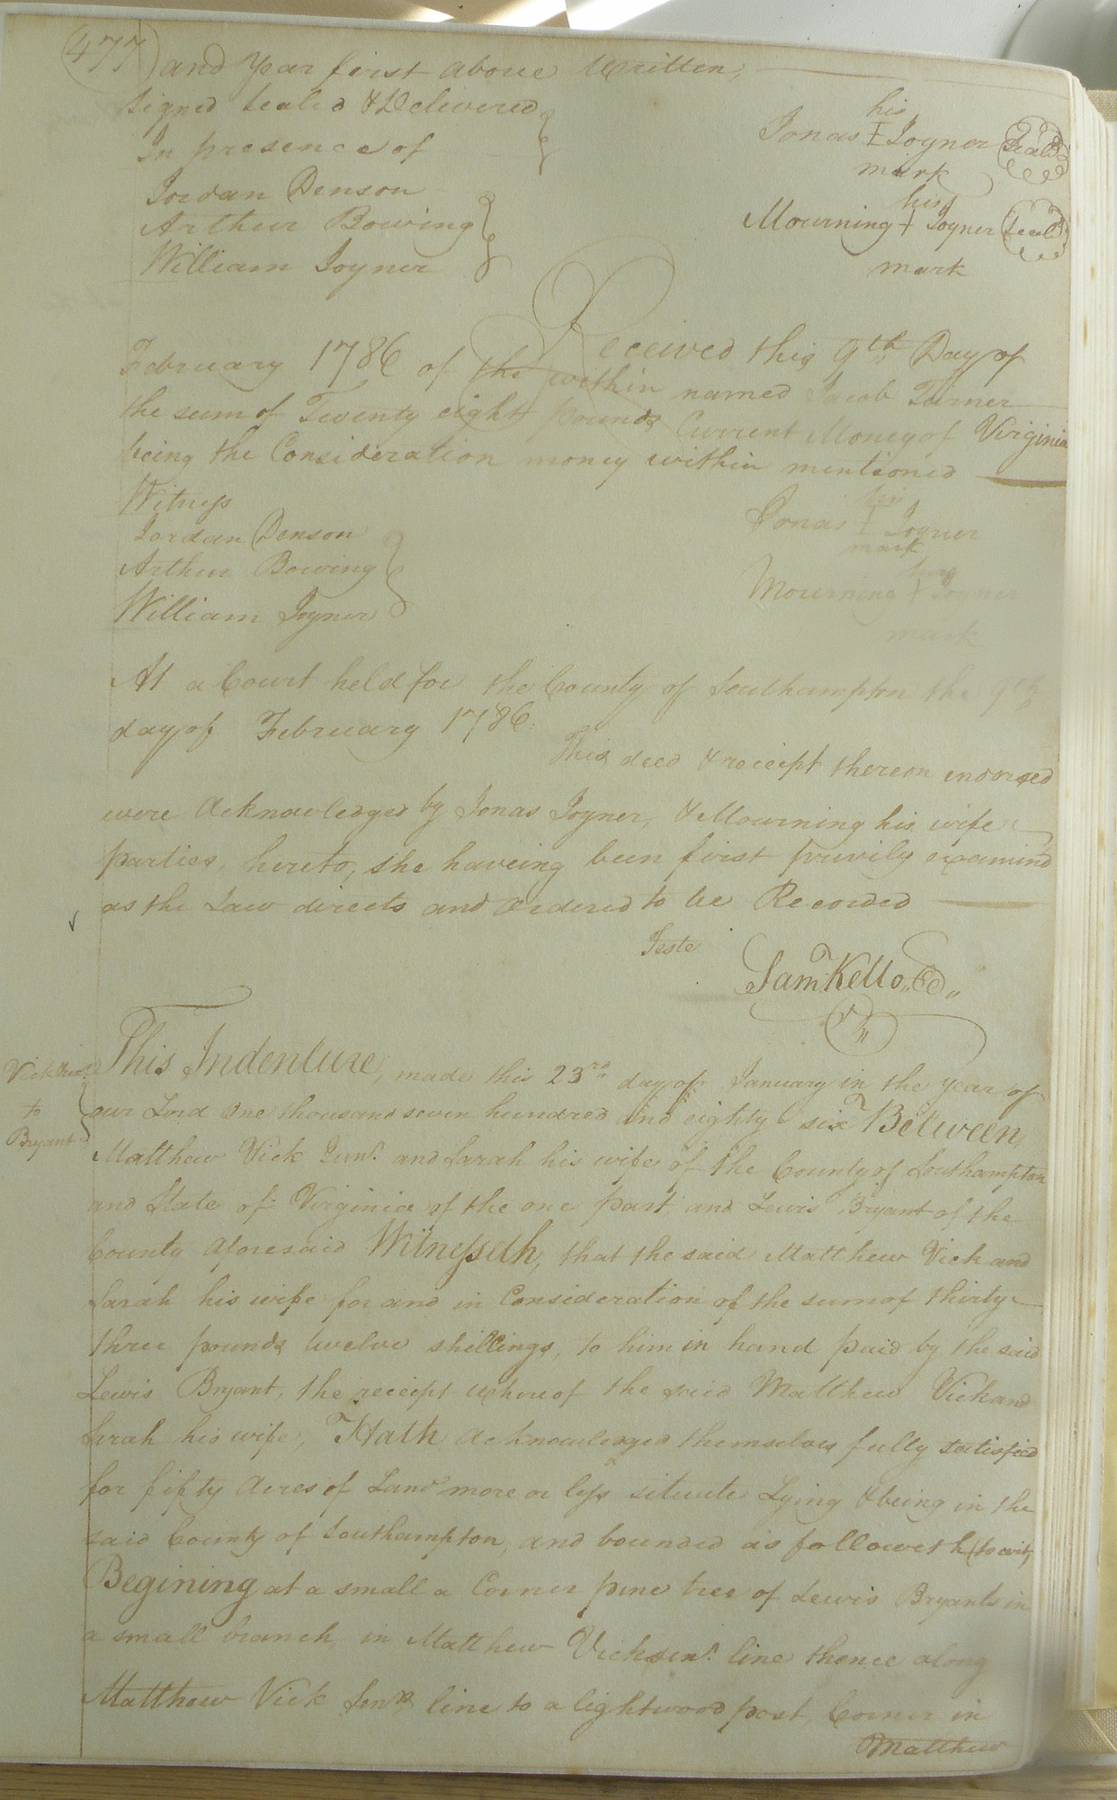 477 and Year first above Written,
Signed Sealed & Delivered
In presence of
his
Jonas I Joyner Seald
mark
Jordan Denson
Arthur Bowing
William Joyner
his
Mourning + Joyner Seald
mark
Received this 9th Day of
February 1786 of the within named Jacob Turner
the sum of Twenty eight pounds Current Money of Virginia
being the Consideration money within mentioned
Witness
Jordan Denson
Arthur Bowing
William Joyner
his
Jonas I Joyner
mark
Mourning + Joyner
mark
At a Court held for the County of Southampton the 9th
day of February 1786.
This deed & receipt thereon endorsed
were Acknowledged by Jonas Joyner, & Mourning his wife
parties, hereto, she haveing been first privily examined
as the Law directs and Ordered to be Recorded
Teste
Sam Kello
This Indenture, made this 23rd day of January in the year of
Vick
to
Bryant
our Lord One thousand seven hundred and eighty six Between
Matthew Vick Junr. and Sarah his wife of the County of Southampton
and State of Virginia of the one part and Lewis Bryant of the
County Aforesaid Witnesseth, that the said Matthew Vick and
Sarah his wife for and in Consideration of the sum of thirty
three pounds twelve shillings, to him in hand paid by the said
Lewis Bryant, the receipt whereof the said Matthew Vick and
Sarah his wife, Hath Acknowledged themselves fully satisfied
for fifty Acres of Land more or less situate Lying & being in the
said County of Southampton, and bounded as followeth (to wit)
Begining at a small a Corner pine tree of Lewis Bryants in
a small branch, in Matthew Vick senr. line thence along
Matthew Vick Senrs line to a lightwood post Corner in
Matthew